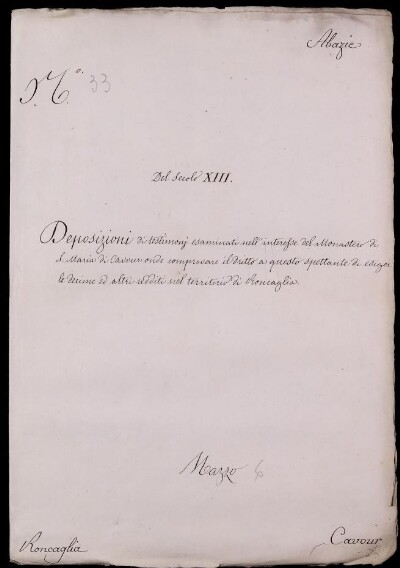 Abazie
N.º 33
Del Secolo XIII.
Deposizioni di testimonj esaminati nell'interesse del Monastero di
S. Maria di Cavour onde comprovare il dritto a questo spettante di esigere
le decime ed altri redditi nel territorio di Roncaglia.
Mazzo 6
Roncaglia
Cavour